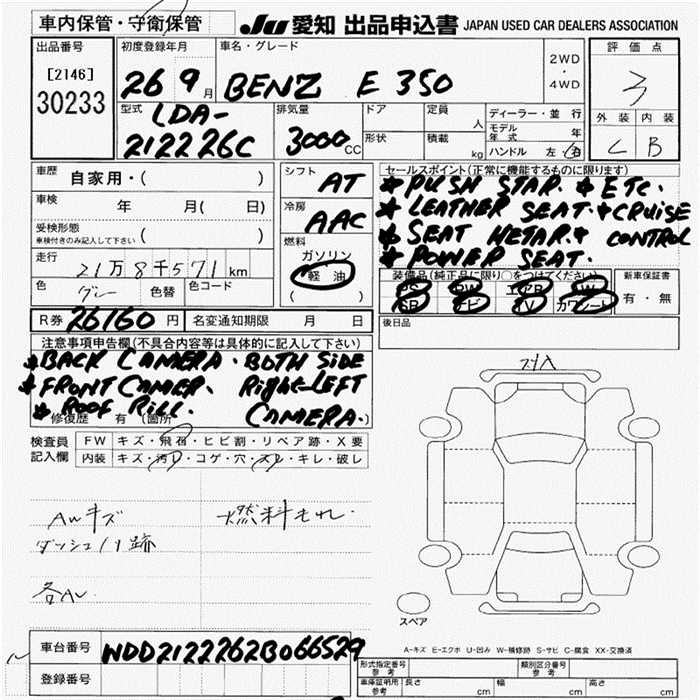 車内保管・守衛保管
JU 愛知 出品申込書 JAPAN USED CAR DEALERS ASSOCIATION
出品番号
[2146]
30233
初度登録年月
26 9月
車名・グレード
BENZ E 350
2WD
・
4WD
評価点
3
外装 内装
C B
型式
LDA-
212226C
排気量
3000CC
ドア
形状
定員
人
積載
kg
ディーラー・並行
モデル年式 年
ハンドル 左・右
車歴
自家用・( )
車検
年 月( 日)
受検形態
車検付きのみ記入して下さい ( )
走行
21万8千571km
色 グレー 色替 色コード
シフト
AT
冷房
AAC
燃料
ガソリン
軽油
( )
セールスポイント(正常に機能するものに限ります)
* PUSH STAR. * ETC.
* LEATHER SEAT. * CRUISE
* SEAT HETAR. * CONTROL
* POWER SEAT.
装備品(純正品に限り○をつけてください)
PS PW エアB AW
SR ナビ TV カワシート
新車保証書
有・無
R券 26160円 名変通知期限 月 日
後日品
注意事項申告欄(不具合内容等は具体的に記入して下さい)
* BACK CAMERA. BOTH SIDE
* FRONT CAMER. Right-LEFT
* ROOF RILL. CAMERA.
修復歴 有 (箇所
検査員
記入欄
FW キズ・飛石・ヒビ割・リペア跡・X要
内装 キズ・汚レ・コゲ・穴・スレ・キレ・破レ
AWキズ 燃料もれ.
ダッシュノリ跡
各AU
スペア
A-キズ E-エクボ U-凹み W-補修跡 S-サビ C-腐食 XX-交換済
車台番号 WDD2122262B066529
登録番号
形式指定番号 参考
類別区分番号 参考
車庫証明用 参考 長さ cm 幅 cm 高さ cm